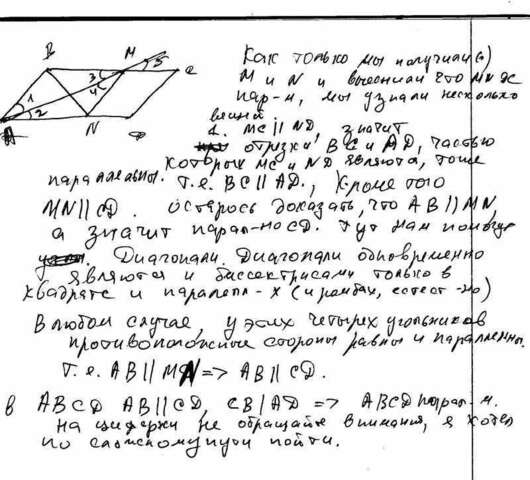 B M C
3 5
4
1
2
A N D
Как только мы получили(о)
M и N и выяснили что MN ж
пар-м, мы узнали несколько
вещей
1. MC || ND, значит
отрезки BC и AD, частью
которых MC и ND являются, тоже
параллельны. Т.е. BC || AD., Кроме того
MN || CD. Осталось доказать, что AB || MN,
а значит парал-но CD. Тут нам помогут
Диагонали. Диагонали одновременно
являются и биссектрисами только в
квадрате и паралепл-х (и ромбах, естест-но)
В любом случае, у этих четырех угольников
противоположные стороны равны и параллельны.
Т.е. AB || MN => AB || CD.
в ABCD AB || CD, CB | AD => ABCD парал-м.
На цифры не обращайте внимания, я хотел
по сложному пути пойти.